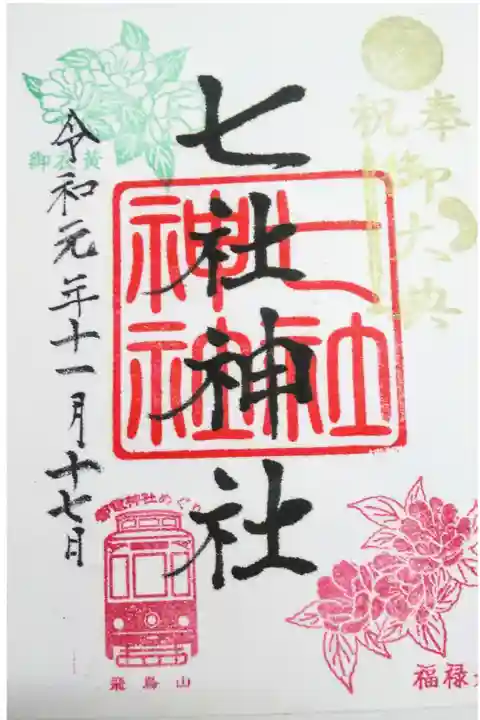 奉祝
御大典
七社神社
七社
神社
令和元年十一月十七日
御衣黄
都電神社めぐり
飛鳥山
福禄